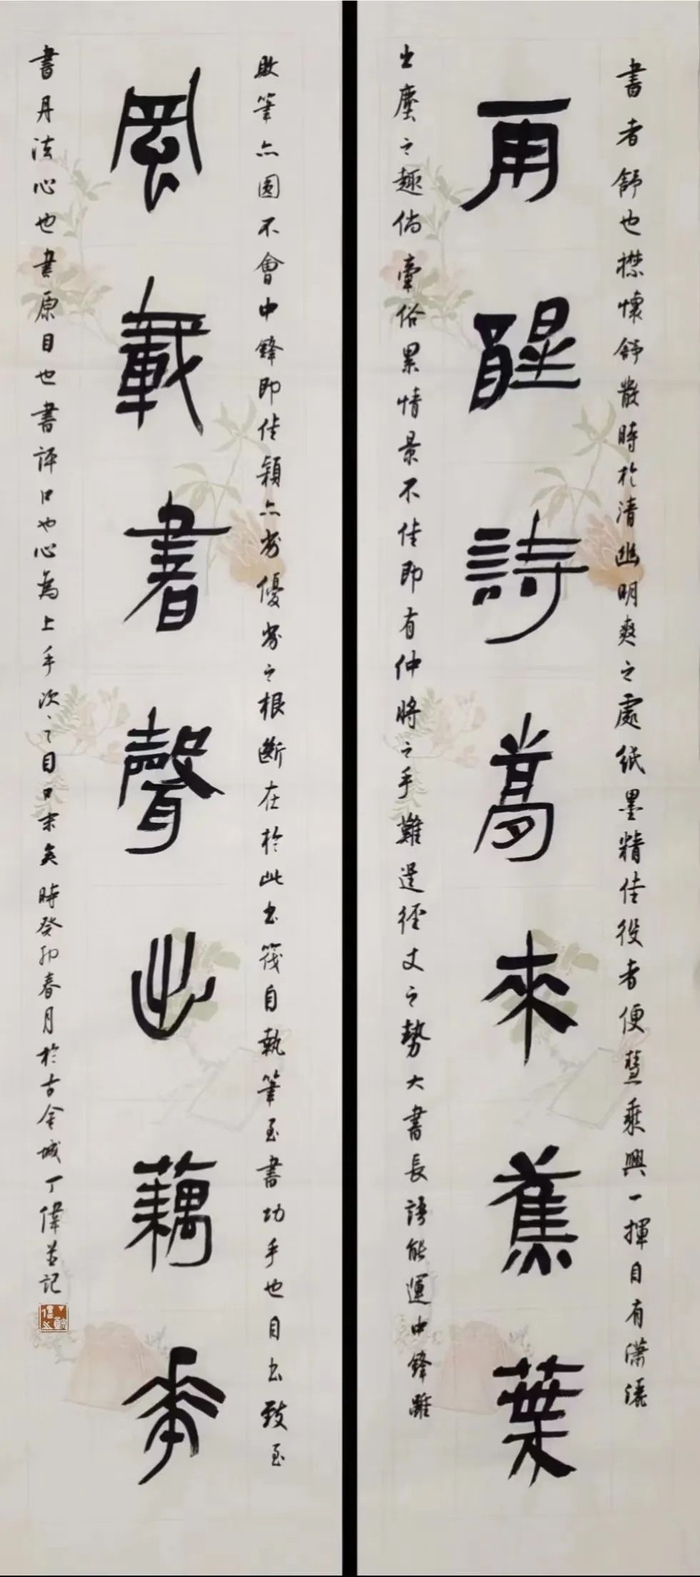 書者舒也襟懷舒散時於清幽明爽之處紙墨精佳役者便慧乘興一揮自有瀟灑
雨醒詩夢來蕉葉
出塵之趣倘牽俗累情景不佳即有仲將之手難逞徑丈之勢大書長語能運中鋒雖
敗筆亦圓不會中鋒即佳穎亦劣優劣之根斷在於此书筏自執筆至書功手也自书致至
風載書聲出藕花
書丹法心也書原目也書評口也心為上手次之目口末矣時癸卯春月於古金城丁偉並記